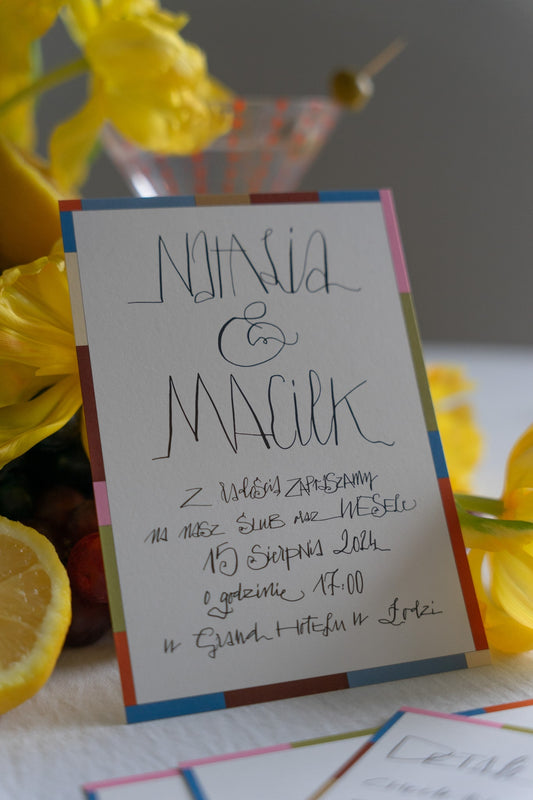 NATALiA
&
MACiEK
Z RADOŚCIĄ ZAPRASZAMY
NA NASZ ŚLUB ORAZ WESELE
15 Sierpnia 2024
o godzinie 17:00
w Grand Hotelu w Łodzi
DETAIL